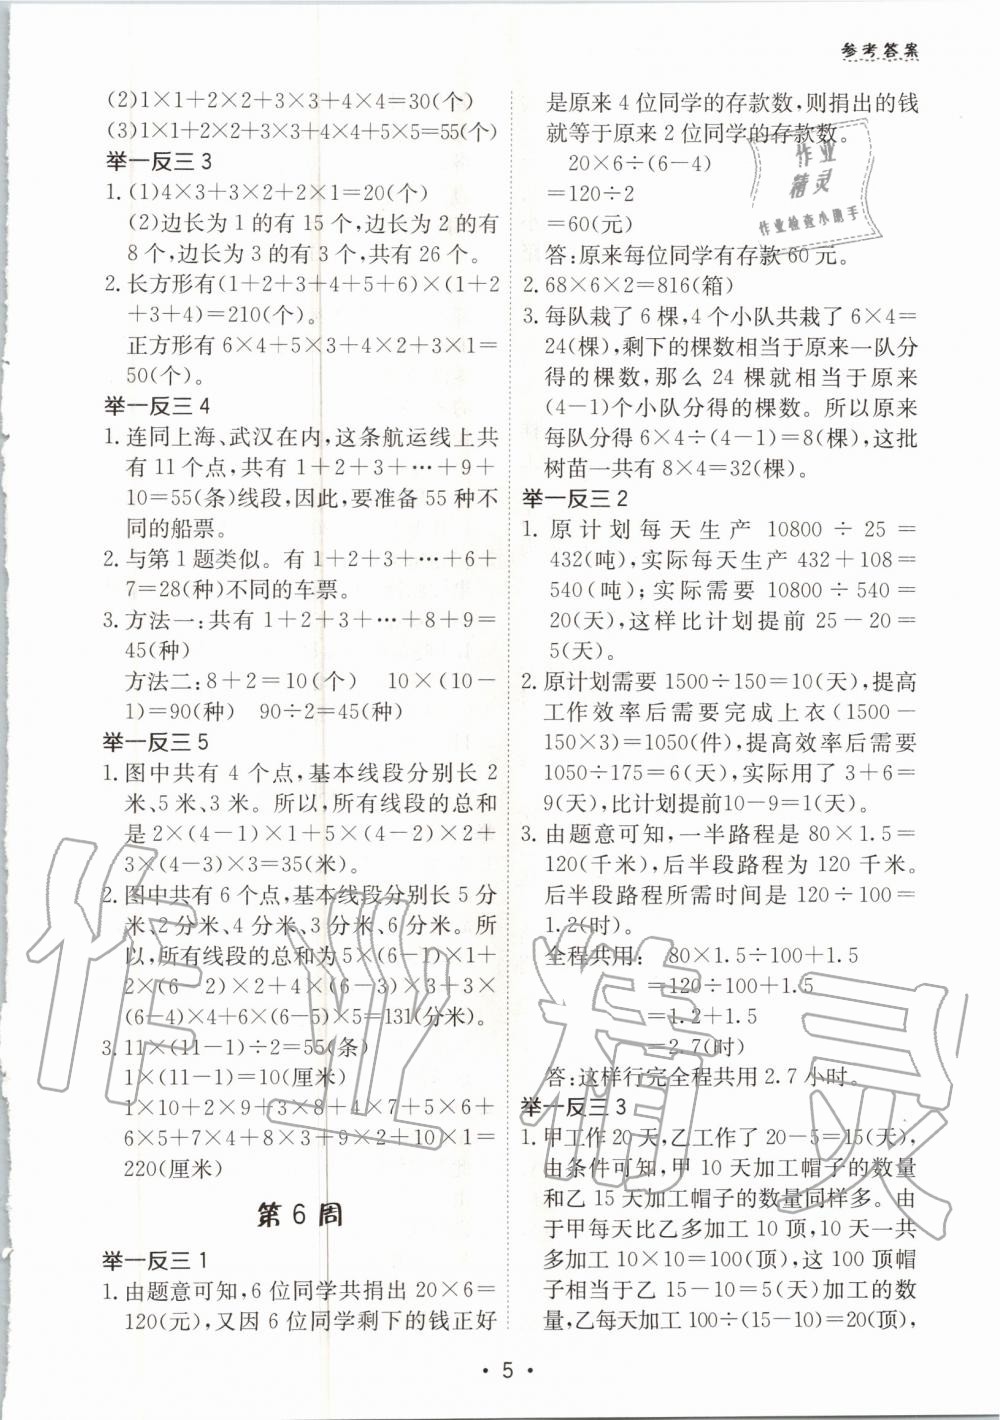 参考答案
(2)1×1+2×2+3×3+4×4=30(个)
(3)1×1+2×2+3×3+4×4+5×5=55(个)
举一反三 3
1. (1)4×3+3×2+2×1=20(个)
(2)边长为 1 的有 15 个,边长为 2 的有
8 个,边长为 3 的有 3 个,共有 26 个。
2. 长方形有(1+2+3+4+5+6)×(1+2
+3+4)=210(个)。
正方形有 6×4+5×3+4×2+3×1=
50(个)。
举一反三 4
1. 连同上海、武汉在内,这条航运线上共
有 11 个点,共有 1+2+3+…+9+
10=55(条)线段,因此,要准备 55 种不
同的船票。
2. 与第 1 题类似。有 1+2+3+…+6+
7=28(种)不同的车票。
3. 方法一:共有 1+2+3+…+8+9=
45(种)
方法二:8+2=10(个) 10×(10-
1)=90(种) 90÷2=45(种)
举一反三 5
1. 图中共有 4 个点,基本线段分别长 2
米、5 米、3 米。所以,所有线段的总和
是 2×(4-1)×1+5×(4-2)×2+
3×(4-3)×3=35(米)。
2. 图中共有 6 个点,基本线段分别长 5 分
米、2 分米、4 分米、3 分米、6 分米。所
以,所有线段的总和为 5×(6-1)×1+
2×(6-2)×2+4×(6-3)×3+3×
(6-4)×4+6×(6-5)×5=131(分米)。
3. 11×(11-1)÷2=55(条)
1×(11-1)=10(厘米)
1×10+2×9+3×8+4×7+5×6+
6×5+7×4+8×3+9×2+10×1=
220(厘米)
第 6 周
举一反三 1
1. 由题意可知,6 位同学共捐出 20×6=
120(元),又因 6 位同学剩下的钱正好
是原来 4 位同学的存款数,则捐出的钱
就等于原来 2 位同学的存款数。
20×6÷(6-4)
=120÷2
=60(元)
答:原来每位同学有存款 60 元。
2. 68×6×2=816(箱)
3. 每队栽了 6 棵,4 个小队共栽了 6×4=
24(棵),剩下的棵数相当于原来一队分
得的棵数,那么 24 棵就相当于原来
(4-1)个小队分得的棵数。所以原来
每队分得 6×4÷(4-1)=8(棵),这批
树苗一共有 8×4=32(棵)。
举一反三 2
1. 原计划每天生产 10800÷25=
432(吨),实际每天生产 432+108=
540(吨);实际需要 10800÷540=
20(天),这样比计划提前 25-20=
5(天)。
2. 原计划需要 1500÷150=10(天),提高
工作效率后需要完成上衣(1500-
150×3)=1050(件),提高效率后需要
1050÷175=6(天),实际用了 3+6=
9(天),比计划提前10-9=1(天)。
3. 由题意可知,一半路程是 80×1.5=
120(千米),后半段路程为 120 千米。
后半段路程所需时间是 120÷100=
1.2(时)
全程共用: 80×1.5÷100+1.5
=120÷100+1.5
=1.2+1.5
=2.7(时)
答:这样行完全程共用 2.7 小时。
举一反三 3
1. 甲工作 20 天,乙工作了 20-5=15(天),
由条件可知,甲 10 天加工帽子的数量
和乙 15 天加工帽子的数量同样多。由
于甲每天比乙多加工 10 顶,10 天一共
多加工 10×10=100(顶),这 100 顶帽
子相当于乙 15-10=5(天)加工的数
量,乙每天加工 100÷(15-10)=20(顶),
• 5 •
作业
精灵
作业检查小助手
作业精灵